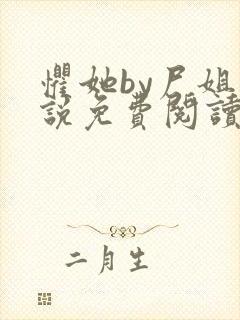 懼她by尸姐
說免費閱讀
二月生